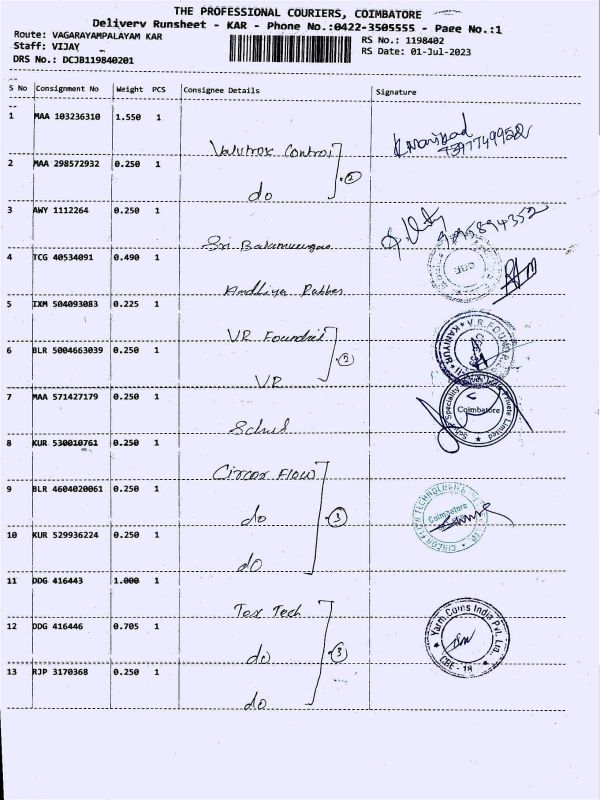 THE PROFESSIONAL COURIERS, COIMBATORE
Delivery Runsheet - KAR - Phone No.:0422-3505555 - Page No.:1
Route: VAGARAYAMPALAYAM KAR
RS No.: 1198402
Staff: VIJAY
RS Date: 01-Jul-2023
DRS No.: DCJB119840201
S No Consignment No Weight PCS Consignee Details Signature
1 MAA 103236310 1.550 1
Control
2 MAA 298572932 0.250 1
do 2
3 AWY 1112264 0.250 1
Sri
4 TCG 40534091 0.490 1
Rubber
5 IXM 504093083 0.225 1
VR
6 BLR 5004663039 0.250 1
VR 2
7 MAA 571427179 0.250 1
Coimbatore
8 KUR 530010761 0.250 1
Circor Flow
9 BLR 4604020061 0.250 1
do 3
Coimbatore
10 KUR 529936224 0.250 1
do
11 DDG 416443 1.000 1
Tex Tech
12 DDG 416446 0.705 1
do 3
Yarm Coms India Pvt. Ltd.
CBE - 18
13 RJP 3170368 0.250 1
do